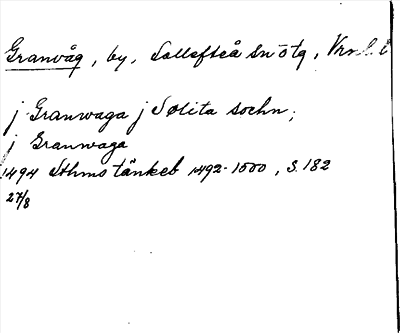 Granvåg, by, Sollefteå snötg,
j Granwaga j Solita sochn;
j Granwaga
1494 Sthms tänkeb 1492-1500, S. 182
27/8